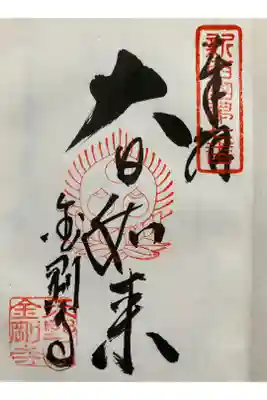 奉拝
大日如来
金剛寺
金剛寺